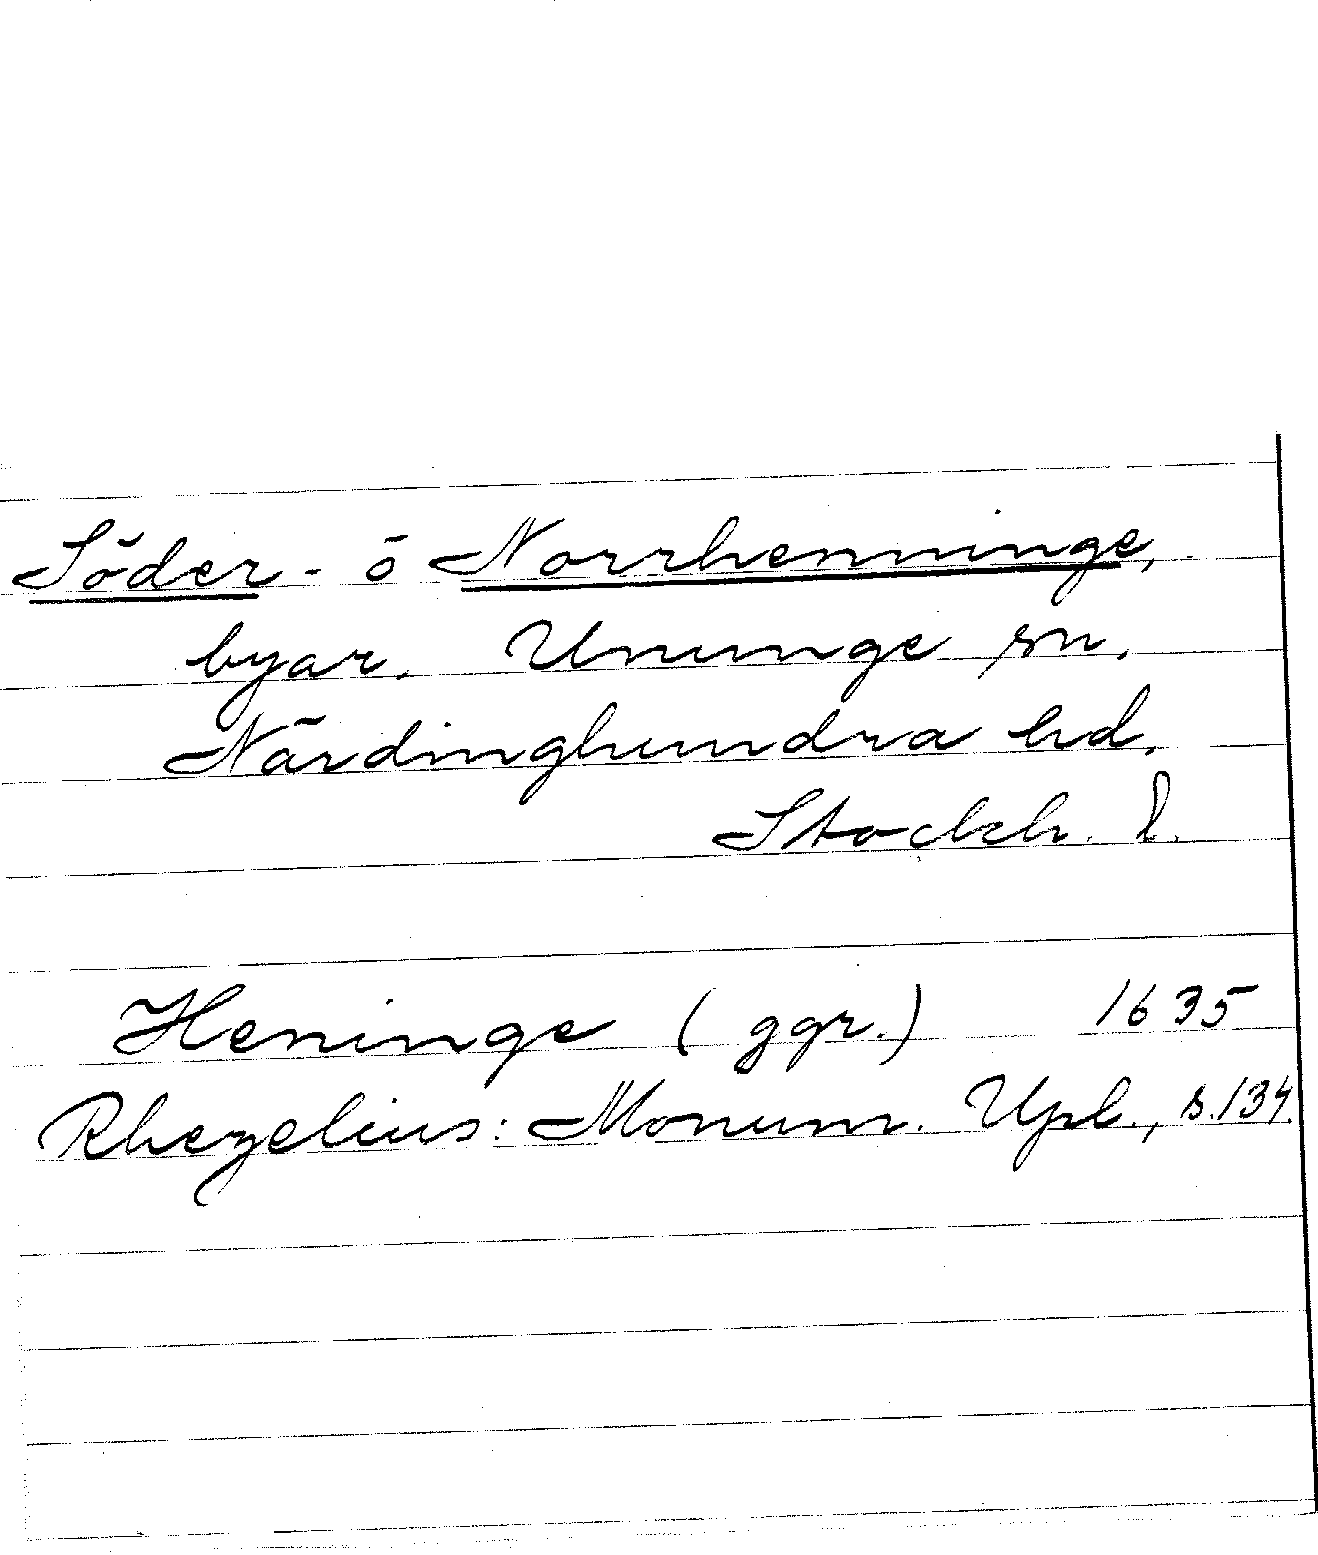 Söder- o Norrhenninge,
byar. Ununge sn,
Närdinghundra hd.
Stockh. l.
Heninge (ggr.) 1635
Rhezelius: Monum. Upl., s.134.